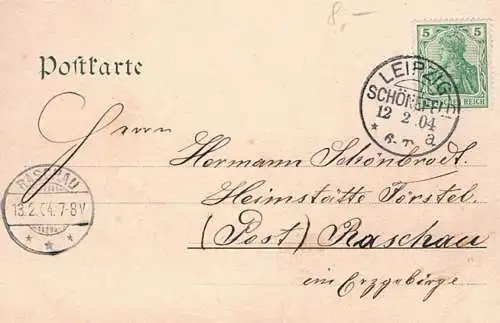 8,-
5 5
REICH
Postkarte
LEIPZIG
SCHÖNEFELD
12 2 .04
* 6-7. a
Herrn
Hermann Schönbrodt.
RASCHAU
13.2.04.7-8V
* * *
Heimstätte Förstel.
(Post) Raschau
im Erzgebirge.